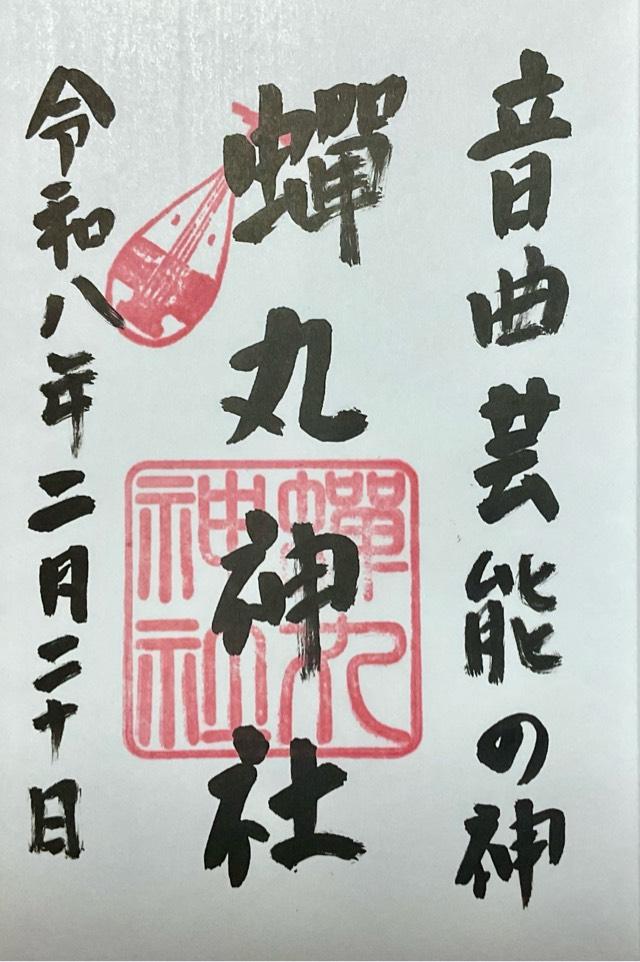 音曲芸能の神
蟬丸神社
蟬丸
神社
令和八年二月二十日